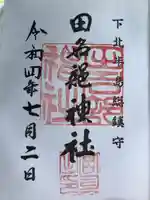 下北半島総鎮守
田名部神社
令和四年七月二日